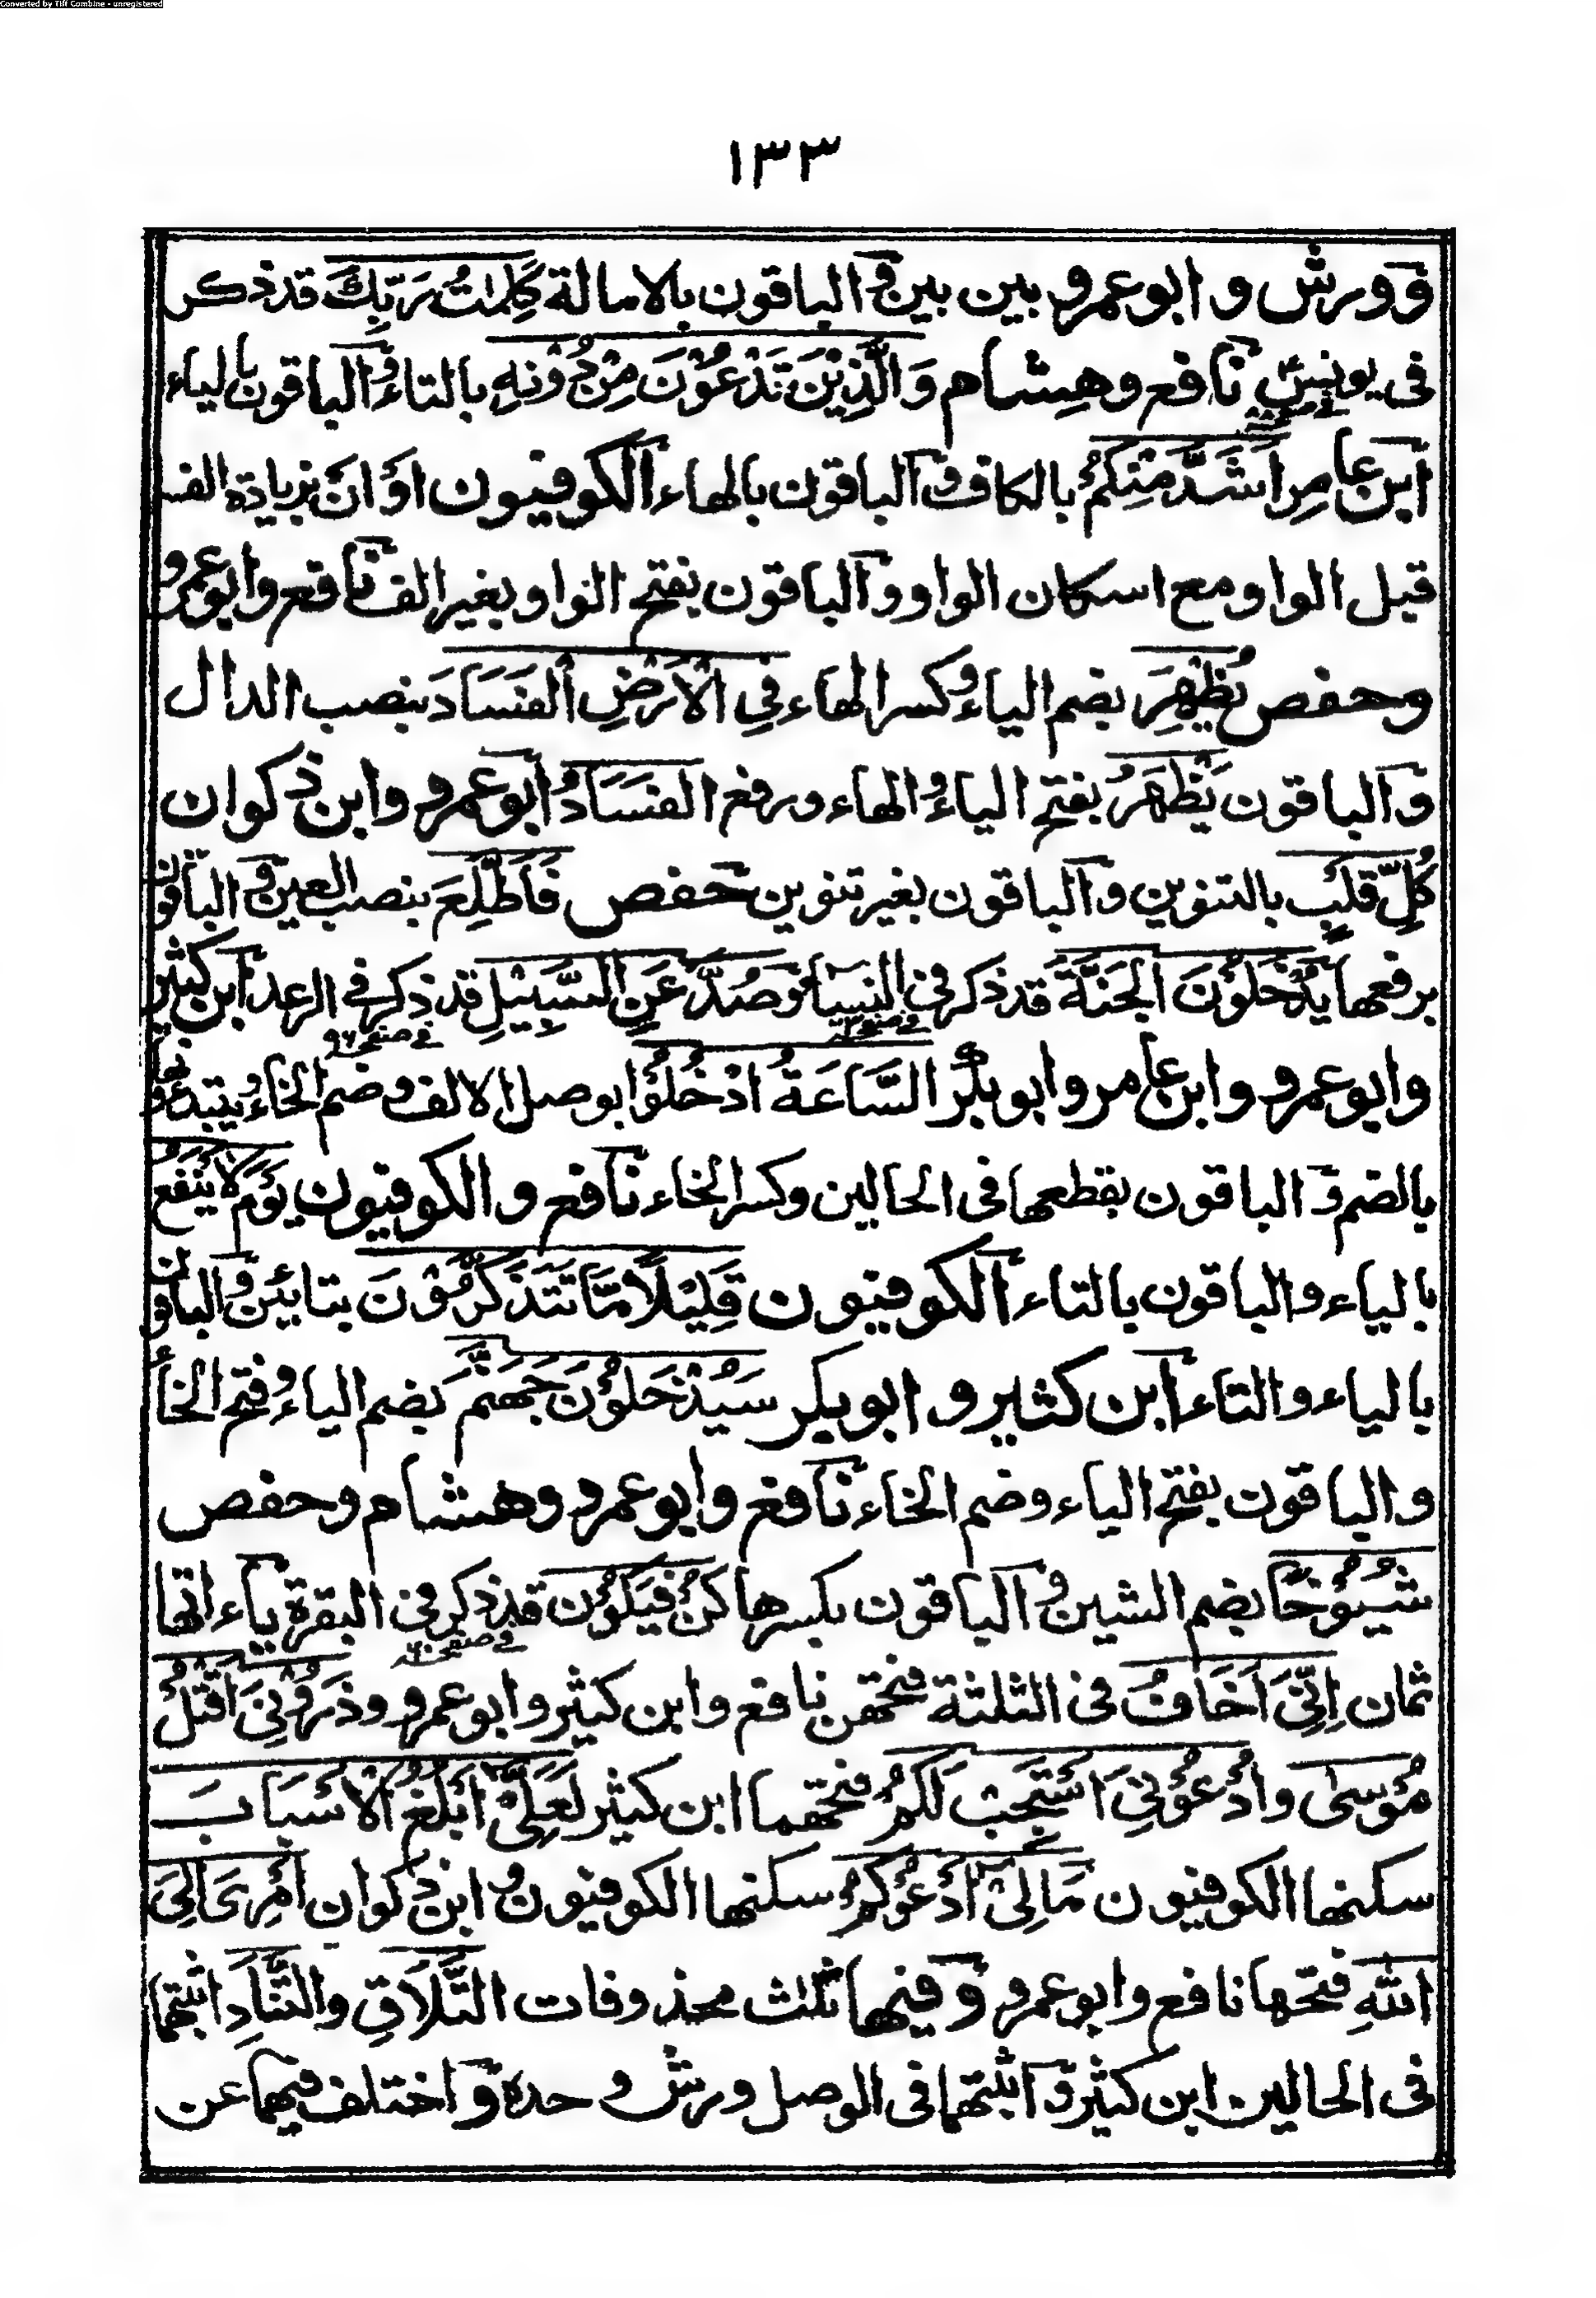 Converted by Tiff Combine - unregistered
١٣٣
وورش و ابو عمرو بين بين و الباقون بالامالة كَلِمٰتُ رَبِّكَ قد ذكر
فى يونس نافع وهشام وَالَّذِيْنَ تَدْعُوْنَ مِنْ دُوْنِهٖ بالتاء و الباقون بالياء
ابن عامر اَشَدَّ مِنْكُمْ بالكاف و الباقون بالهاء الكوفيون اَوْ اَنْ بزيادة الف
قبل الواو مع اسكان الواو و الباقون بفتح الواو بغير الف نافع وابو عمرو
وحفص يُظْهِرَ بضم الياء و كسر الهاء فِى الْاَرْضِ الْفَسَادَ بنصب الدال
و الباقون يَظْهَرُ بفتح الياء و الهاء ورفع الفَسَادُ ابو عمرو وابن ذكوان
كُلِّ قَلْبٍ بالتنوين و الباقون بغير تنوين حفص فَاَطَّلِعَ بنصب العين و الباقون
برفعها يُدْخَلُوْنَ الْجَنَّةَ قد ذكر فى النساء وَصُدَّ عَنِ السَّبِيْلِ قد ذكر فى الرعد ابن كثير
فى صفحه ٩٦
وابو عمرو وابن عامر وابو بكر السَّاعَةُ ادْخُلُوْا بوصل الالف و ضم الخاء و يبتدءونها
بالضم و الباقون بقطعها فى الحالين وكسر الخاء نافع و الكوفيون يَوْمَ لَا يَنْفَعُ
بالياء و الباقون بالتاء الكوفيون قَلِيْلًا مَّا تَتَذَكَّرُوْنَ بتائين و الباقون
بالياء و التاء ابن كثير و ابو بكر سَيُدْخَلُوْنَ جَهَنَّمَ بضم الياء و فتح الخاء
و الباقون بفتح الياء وضم الخاء نافع وابو عمرو وهشام وحفص
شُيُوْخًا بضم الشين و الباقون بكسرها كُنْ فَيَكُوْنَ قد ذكر فى البقرة ياءاتها
ثمان اِنِّىَ اَخَافُ فى الثلثة فتحهن نافع وابن كثير وابو عمرو وذَرُوْنِىَ اَقْتُلْ
مُوْسٰى وادْعُوْنِىَ اَسْتَجِبْ لَكُمْ فتحهما ابن كثير لَعَلِّىْ اَبْلُغُ الْاَسْبَابَ
سكنها الكوفيون مَالِىْ اَدْعُوْكُمْ سكنها الكوفيون و ابن ذكوان اَمْرِىَ اِلَى
اللّٰهِ فتحها نافع وابو عمرو و فيها ثلٰث محذوفات التَّلَاقِ والتَّنَادِ اثبتهما
فى الحالين ابن كثير و اثبتهما فى الوصل ورش وحده و اختلف فيهما عن